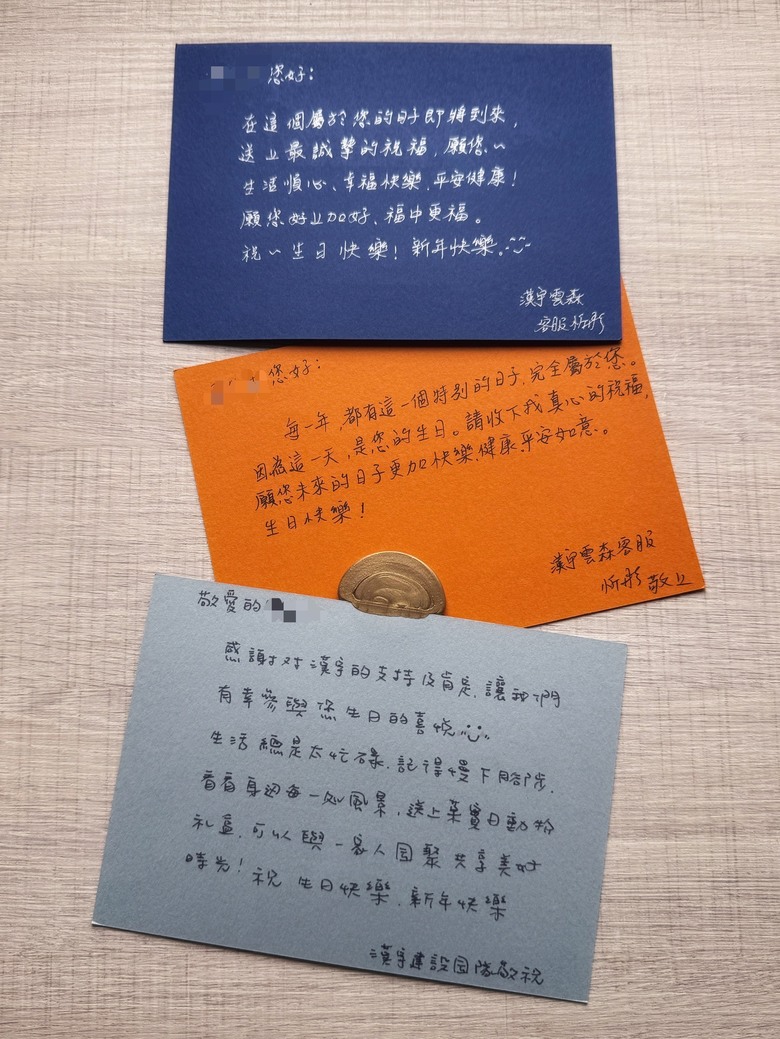 您好：
在這個屬於您的日子即將到來，
送上最誠摯的祝福，願您~
生活順心、幸福快樂、平安健康！
願您好上加好、福中更福。
祝~生日快樂！新年快樂。
漢宇雲森
客服 忻彤
您好：
每一年，都有這一個特別的日子，完全屬於您。
因為這一天，是您的生日。請收下我真心的祝福，
願您未來的日子更加快樂、健康、平安如意。
生日快樂！
漢宇雲森客服
忻彤 敬上
敬愛的
感謝對漢宇的支持及肯定，讓我們
有幸參與您生日的喜悅
生活總是太忙碌，記得慢下腳步，
看看身邊每一処風景，送上菓實日動物
礼盒，可以與一家人团聚共享美好
時光！祝 生日快樂、新年快樂
漢宇建設团隊敬祝